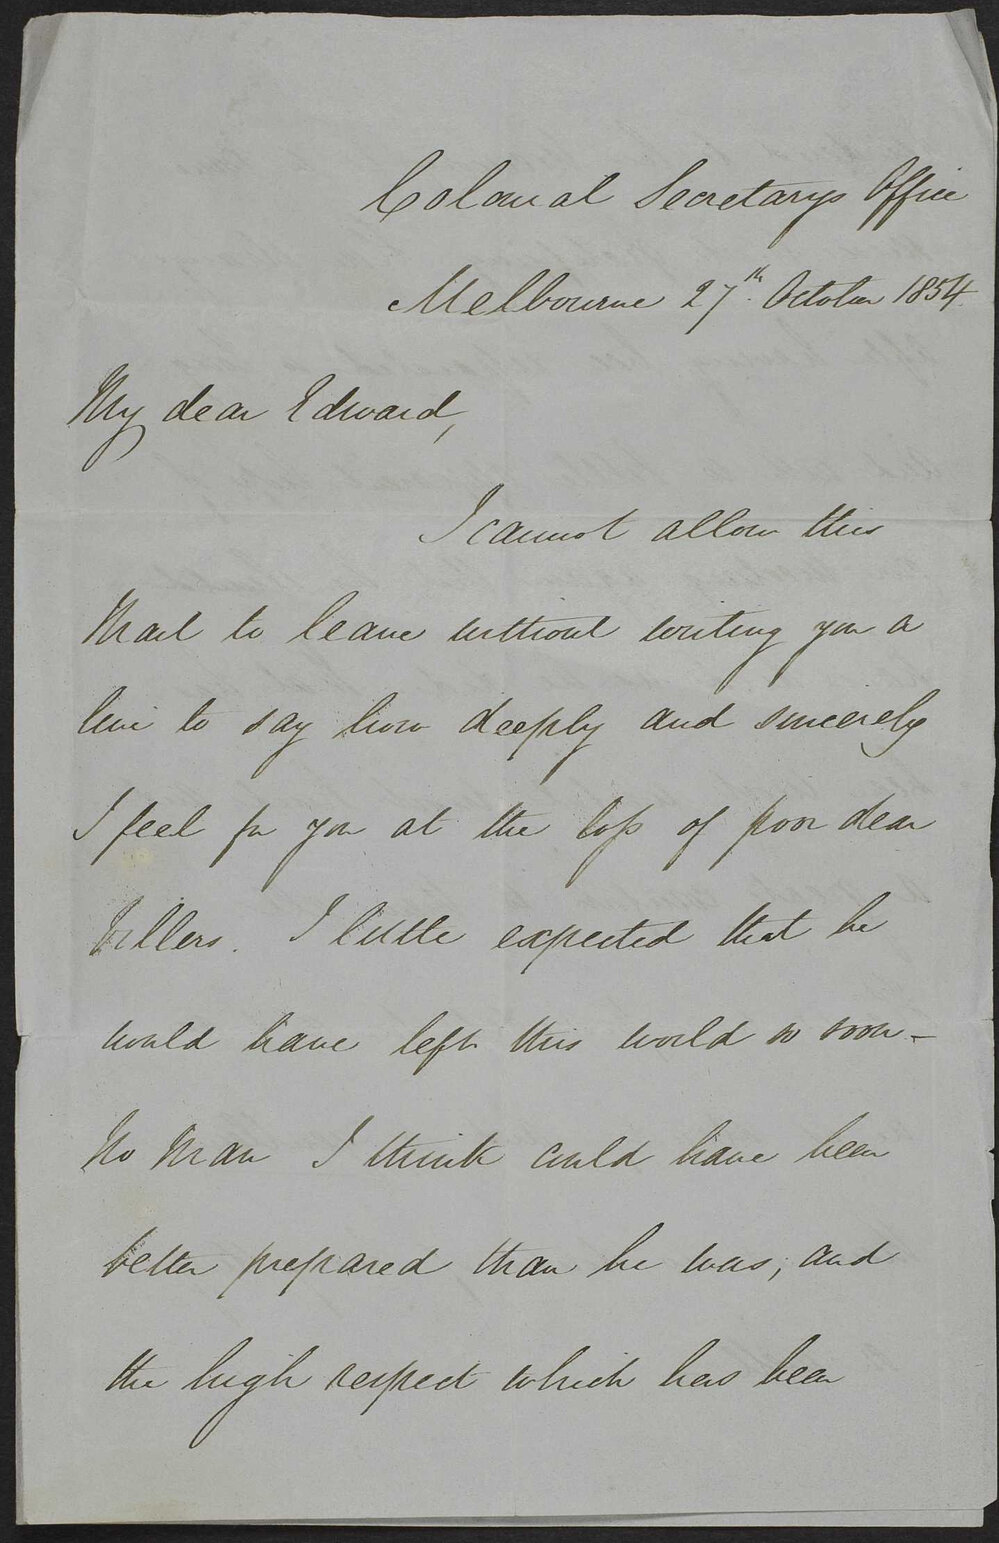 Colonial Secretarys Office
Melbourne 27th October 1854.
My dear Edward,
I cannot allow this
Mail to leave without writing you a
line to say how deeply and sincerely
I feel for you at the loss of poor dear
Villers. I little expected that he
would have left this world so soon –
No Man I think could have been
better prepared than he was; and
the high respect which has been